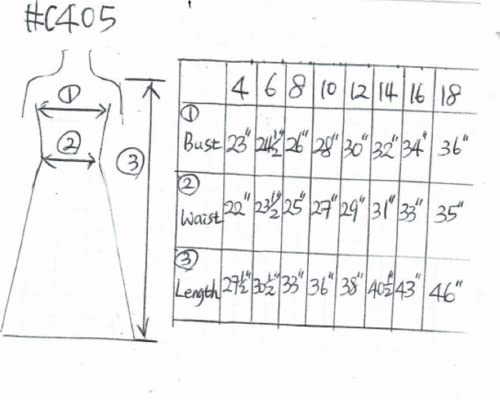 #C405
① ② ③
4 6 8 10 12 14 16 18
① Bust 23" 24½" 26" 28" 30" 32" 34" 36"
② Waist 22" 23½" 25" 27" 29" 31" 33" 35"
③ Length 27½" 30½" 33" 36" 38" 40½" 43" 46"